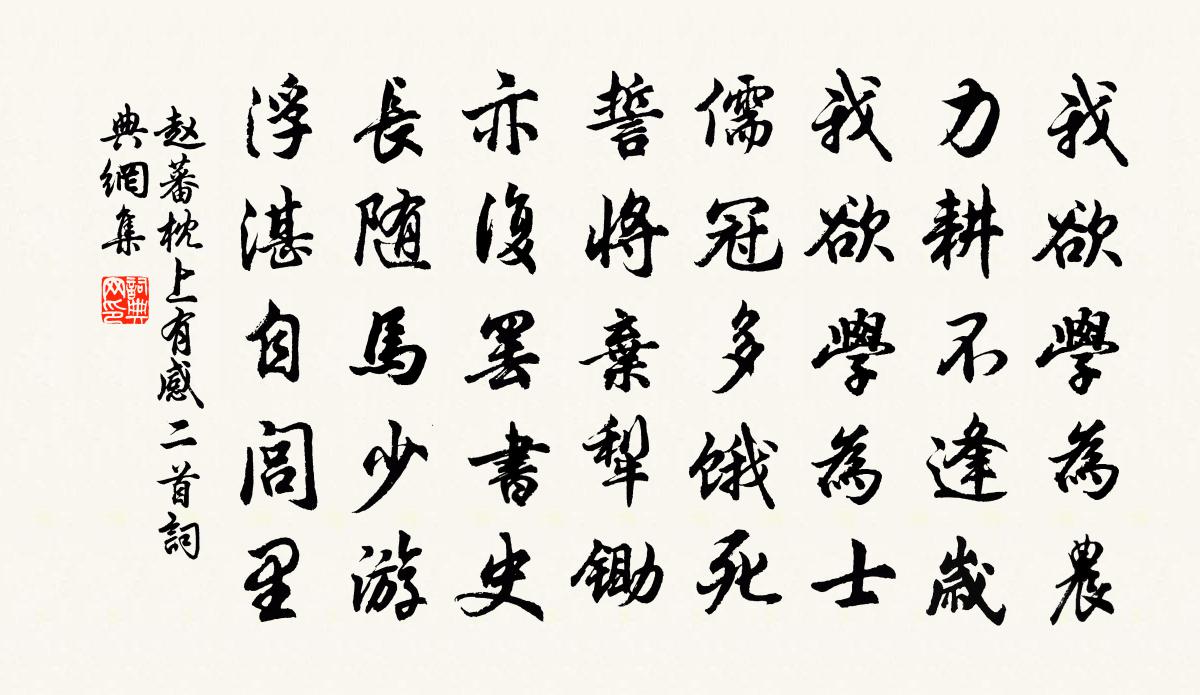 我欲學為農
力耕不逢歲
我欲學為士
儒冠多餓死
誓將棄犁鋤
亦復罢書史
長随馬少游
浮湛自閭里
赵蕃枕上有感二首詞
典網集
詞典
网印